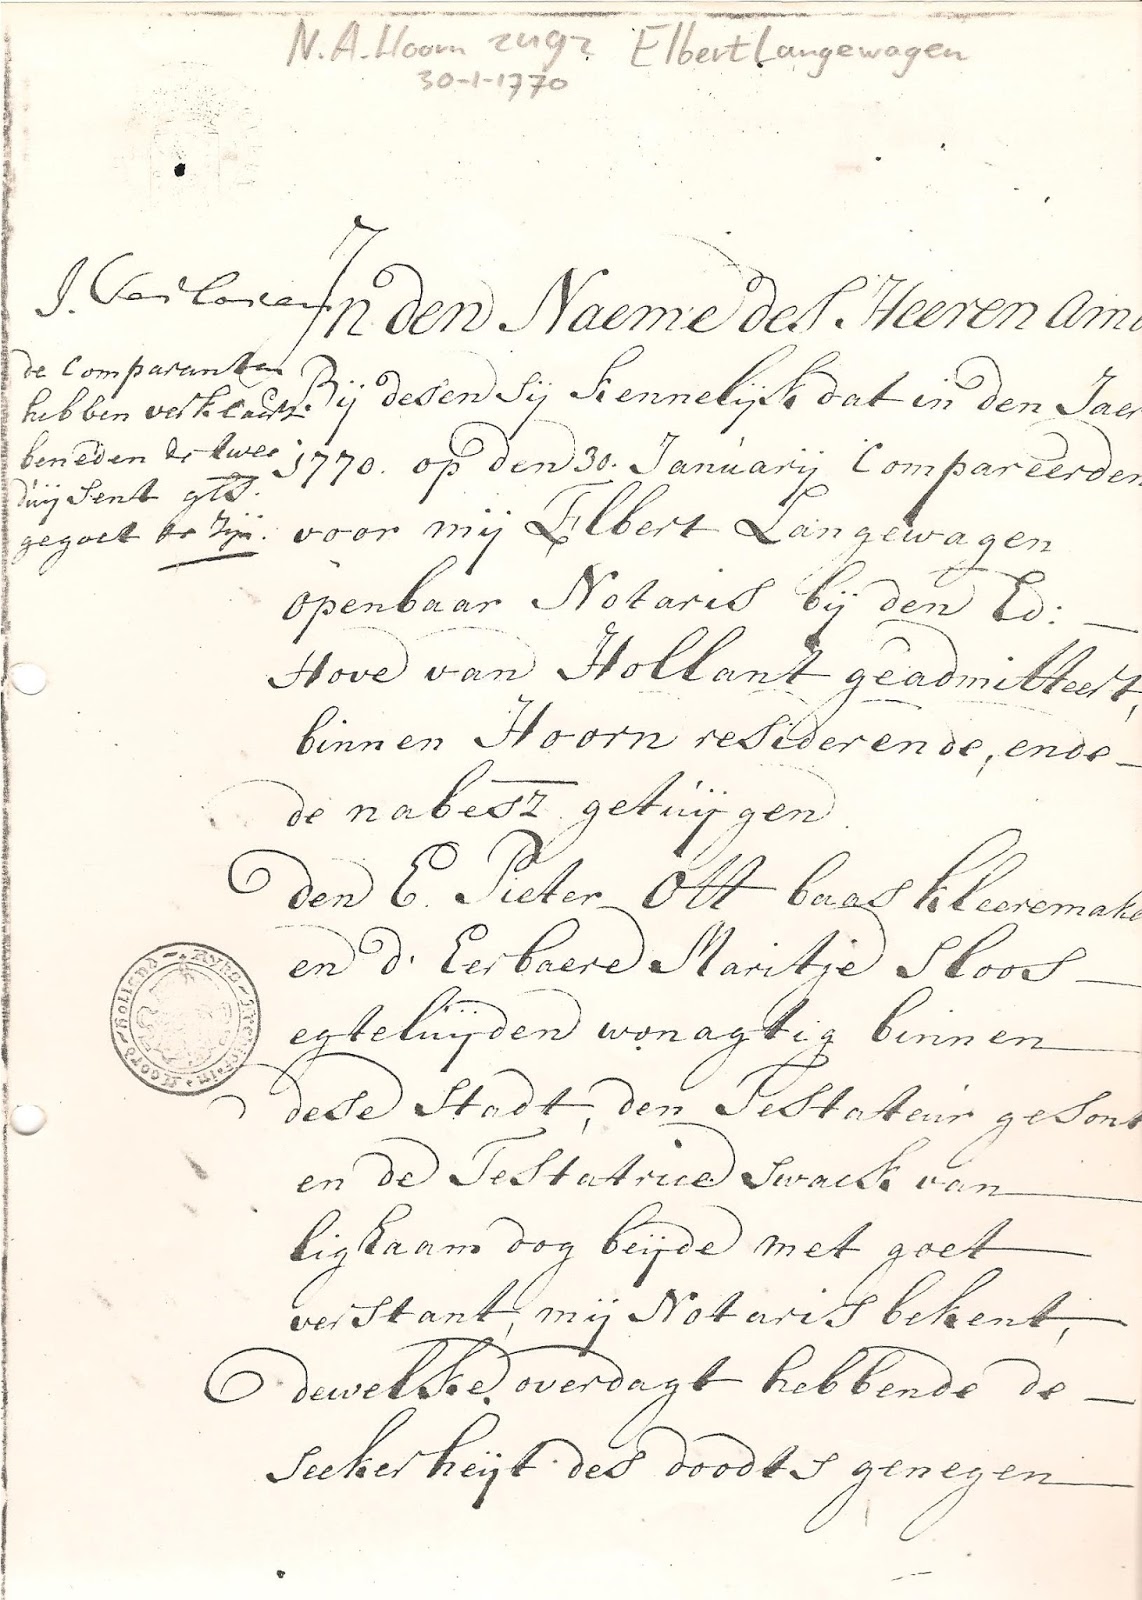 N.A. Hoorn 2492 Elbert Langewagen
30-1-1770
In den Naeme des Heeren Ame
de Comparanten
hebben verklaert
beneden de twee
duijsent gls.
gegoet te zijn.
Bij desen sij kennelijk dat in den Jaer
1770. op den 30. Januarij Compareerden
voor mij Elbert Langewagen
openbaar Notaris bij den Ed:
Hove van Hollant geadmitteert,
binnen Hoorn residerende, ende
de nabesz. getuijgen
den E. Pieter Ott baas kleeremake
en d' Eerbaere Maritje Sloos
egteluijden wonagtig binnen
dese stadt, den Testateur gesont
en de Testatrice swack van
ligHaam dog beijde met goet
verstant, mij Notaris bekent,
dewelke overdagt hebbende de
seekerheijt des doodts genegen